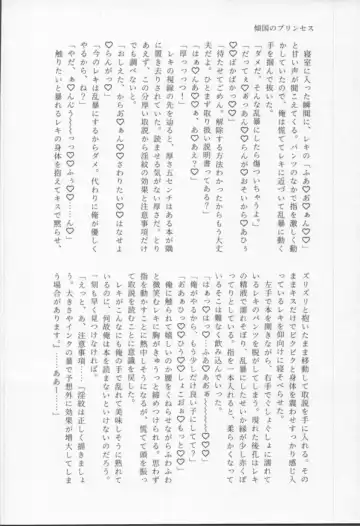 傾国のプリンセス
寝室に入った瞬間に、レキの「ふあ♡お♡あぁん♡♡」
と甘い声が聞こえてくる。パンツのなかで指を激しく動
かしているレキに、俺は慌ててレキに近づいて乱暴に動く
手を掴んで抜いた。
「ダメだ、そんな乱暴にしたら傷ついちゃうよ」
「だってぇ♡おっあん♡らんが♡おそいから♡あひぅ
♡♡ばかばかっ♡♡」
「待たせてごめん。解除する方法わかったからもう大丈
夫だよ。ひとまず取り扱い説明書ってある?」
「はぁ♡あん♡そこぉ♡あぁ♡」
「厚っつっ!」
レキの視線の先を辿ると、厚さ五センチはある本が隅
に置き去りされていた。読ませる気がない厚さだ。とり
あえず、この分厚い取説から淫紋の効果と注意事項だけ
でも調べないと。
「おしえた、からおぉん♡さわりたい♡♡はなせよ
♡♡らんがっ♡」
「今のレキは乱暴にするからダメ。代わりに俺が優しく
やるから、ね?」
「やだ、ぁん♡うーっ♡♡ふぅ♡♡……っ♡」
触りたいと暴れるレキの身体を抱えてキスで黙らせ、
ズリズリと抱いたまま移動して取説を手に入れる。その
ままキスだけでビクビクと身体を震わせすっかり感じ入
っているレキを仰向けに寝そべらせた。
左手で本を開きながら、右手でぐしょぐしょに濡れて
いるレキのパンツを脱がしてしまう。現れた後孔はレキ
の精液で濡れそぼり、乱暴にしたせいか縁が少し赤くぽ
ってりとしている。指を一本入れると、柔らかくなって
いるそこは難なく飲み込んでいった。
「はぁっ♡♡はっ♡……ふぁ♡あぁぁ♡♡♡♡」
「俺がやるから、もう少しだけ良い子にしてて?」
「ああぁっ♡♡ひぅ♡♡しょこぉっ♡もっとぉ♡♡」
俺に触れられて嬉しいのか腰をくねらせながらふわふわ
と微笑むレキに胸がきゅうっと締めつけられる。思わず
指を動かすことに熱中しそうになるが、慌てて頭を振っ
て取説を読むことに意識を戻した。
レキがこんなにも俺の手で乱れて美味しそうに熟れて
いるのに、何故俺は本を読まないといけないのだろう。
一刻も早く見つけなければ。
「えっと、あ、注意事項……『淫紋は正しく描きましょ
う。大きさやインクの量で予想外に効果が増大してしま
う場合があります。』……ああー……」